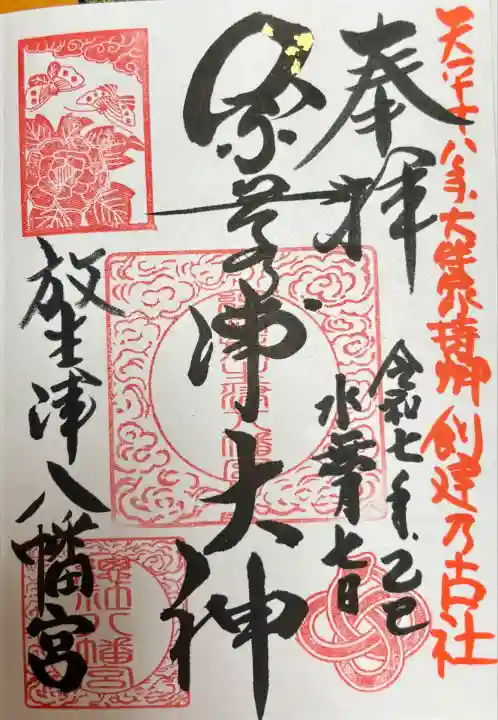 天平十八年大伴家持卿創建乃古社
奉拝
令和七年乙巳
水無月七日
奈呉之浦大神
放生津八幡宮